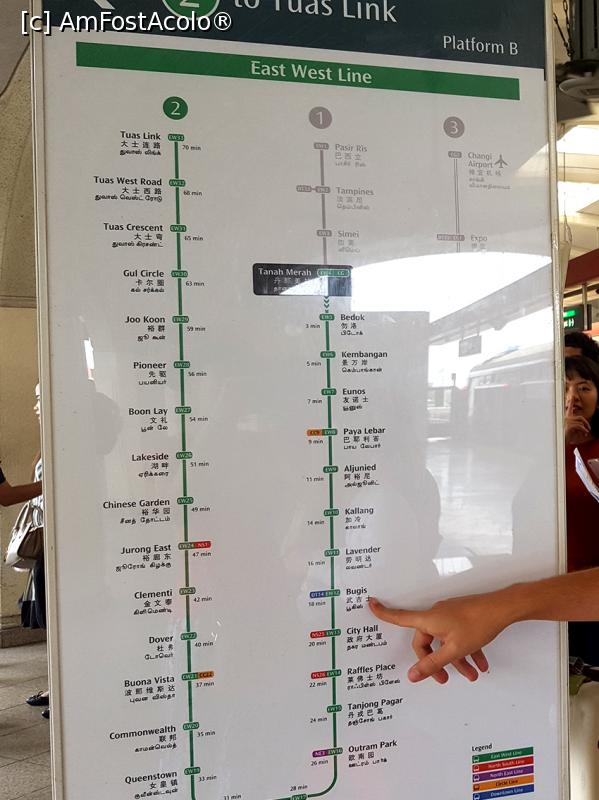 [c] AmFostAcolo®
2 to Tuas Link
Platform B
East West Line
2
Tuas Link EW33
大士连路 70 min
துவாஸ் லிங்க்
Tuas West Road EW32
大士西路 68 min
துவாஸ் வெஸ்ட் ரோடு
Tuas Crescent EW31
大士弯 65 min
துவாஸ் கிரசண்ட்
Gul Circle EW30
卡尔圈 63 min
கல் சர்க்கல்
Joo Koon EW29
裕群 59 min
ஜூ கூன்
Pioneer EW28
先驱 56 min
பயனியர்
Boon Lay EW27
文礼 54 min
பூன் லே
Lakeside EW26
湖畔 51 min
ஏரிக்கரை
Chinese Garden EW25
裕华园 49 min
சீனத் தோட்டம்
Jurong East EW24 NS1
裕廊东 47 min
ஜூரோங் கிழக்கு
Clementi EW23
金文泰 42 min
கிளிமெண்டி
Dover EW22
杜弗 40 min
டோவர்
Buona Vista EW21 CC22
波那维斯达 37 min
புவன விஸ்தா
Commonwealth EW20
联邦 35 min
காமன்வெல்த்
Queenstown EW19
女皇镇 33 min
குவீன்ஸ்டவுன்
1
EW1 Pasir Ris
巴西立
பாசிர் ரிஸ்
EW2 Tampines
淡滨尼
தெம்பினிஸ்
EW3 Simei
四美
ஸீமெய்
Tanah Merah EW4 CG
EW5 Bedok
3 min 勿洛
பிடோக்
EW6 Kembangan
5 min 景万岸
கெம்பாங்கான்
EW7 Eunos
7 min 友诺士
யூனுஸ்
CC9 EW8 Paya Lebar
9 min 巴耶利峇
பாய லேபார்
EW9 Aljunied
11 min 阿裕尼
அல்ஜூனிட்
EW10 Kallang
14 min 加冷
காலாங்
EW11 Lavender
16 min 劳明达
லவண்டர்
DT14 EW12 Bugis
18 min 武吉士
பூகிஸ்
NS25 EW13 City Hall
20 min 政府大厦
நகர மண்டபம்
NS26 EW14 Raffles Place
22 min 莱佛士坊
ராஃபிள்ஸ் பிளேஸ்
EW15 Tanjong Pagar
24 min 丹戎巴葛
தஞ்சோங் பகார்
NE3 EW16 Outram Park
26 min 欧南园
ஊட்ரம் பார்க்
28 min
EW17
3
CG2 Changi
Airport
樟宜机场
சாங்கி
விமானநிலையம்
Expo
Legend
East West Line
North South Line
North East Line
Circle Line
Downtown Line